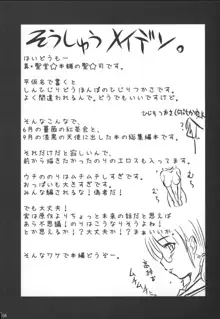 そうしゅうメイデン。
はいどうもー
真・聖堂☆本舗の聖☆司です。
平仮名で書くと
しんなじりどうほんぽのひじりつかさです。
よく間違われるんで。どうでもいいですけど。
そんなこんなで、
6月の薔薇の紅茶会と、
9月の漆黒の天使に出した本の総集編本です。
それだけだと寂しいんで、
前から描きたかったのりのエロスも入ってます。
ウチののりはムチムチしすぎです。
おっぱいも大きすぎです。
みんな騙されるな！偽者だ！
でも大丈夫！
実は原作よりちょっと未来の話だと思えば
あら不思議！のりはこうなりそうよね！
とか思えるか！？大丈夫か？ーまぁいいか。
そんなワケで本編どうぞー。
むち
むち